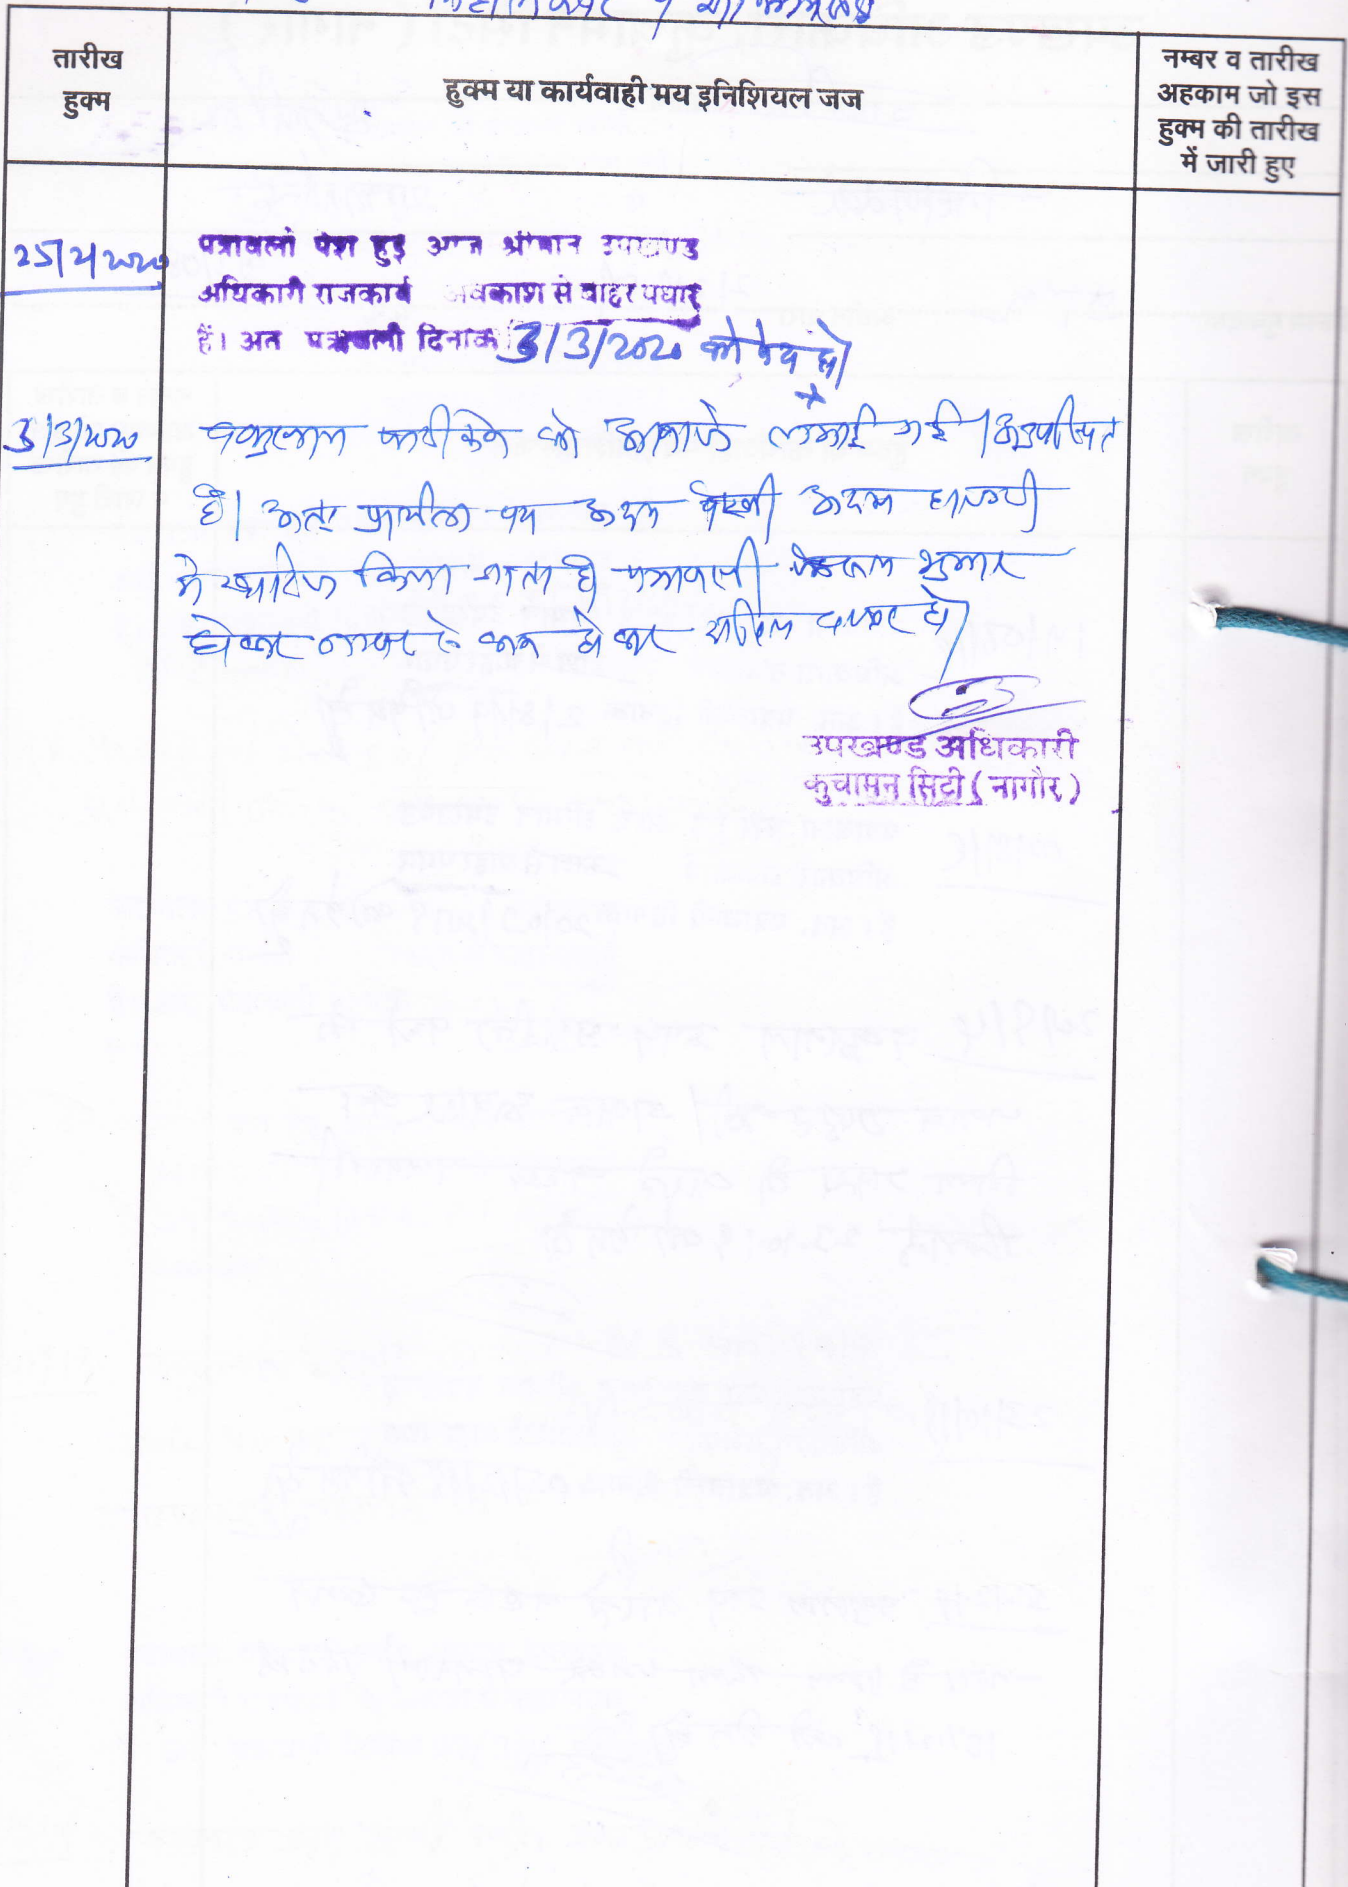 तारीख
हुक्म
हुक्म या कार्यवाही मय इनिशियल जज
नम्बर व तारीख
अहकाम जो इस
हुक्म की तारीख
में जारी हुए
पत्रावली पेश हुई आज श्रीमान उपखण्ड
अधिकारी राजकार्य अवकाश से बाहर पधारे
हैं। अत पत्रावली दिनांक 3/3/2020 को पेश हो
3/3/2020
को आवाजे लगवाई गई। अनुपस्थित
है। अतः पत्र अदम पैरवी अदम हाजरी
मे खारिज किया जाता है पत्रावली शुमार
होकर नम्बर से कम होकर दाखिल दफ्तर हो।
उपखण्ड अधिकारी
कुचामन सिटी (नागौर)